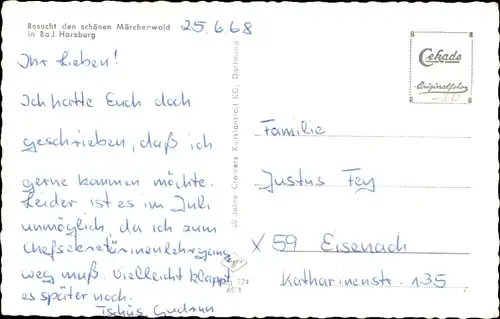 Besucht den schönen Märchenwald
in Bad Harzburg
25.6.68
Ihr Lieben!
Ich hatte Euch doch
geschrieben, daß ich
gerne kommen möchte.
Leider ist es im Juli
unmöglich, da ich zum
Chefsekretärinnenlehrgang
weg muß. Vielleicht klappt
es später noch.
Tschüs Gudrun
60 Jahre Cramers Kunstanstalt KG, Dortmund
Cekade
Originalfoto
Familie
Justus Fey
X 59 Eisenach
Katharinenstr. 135